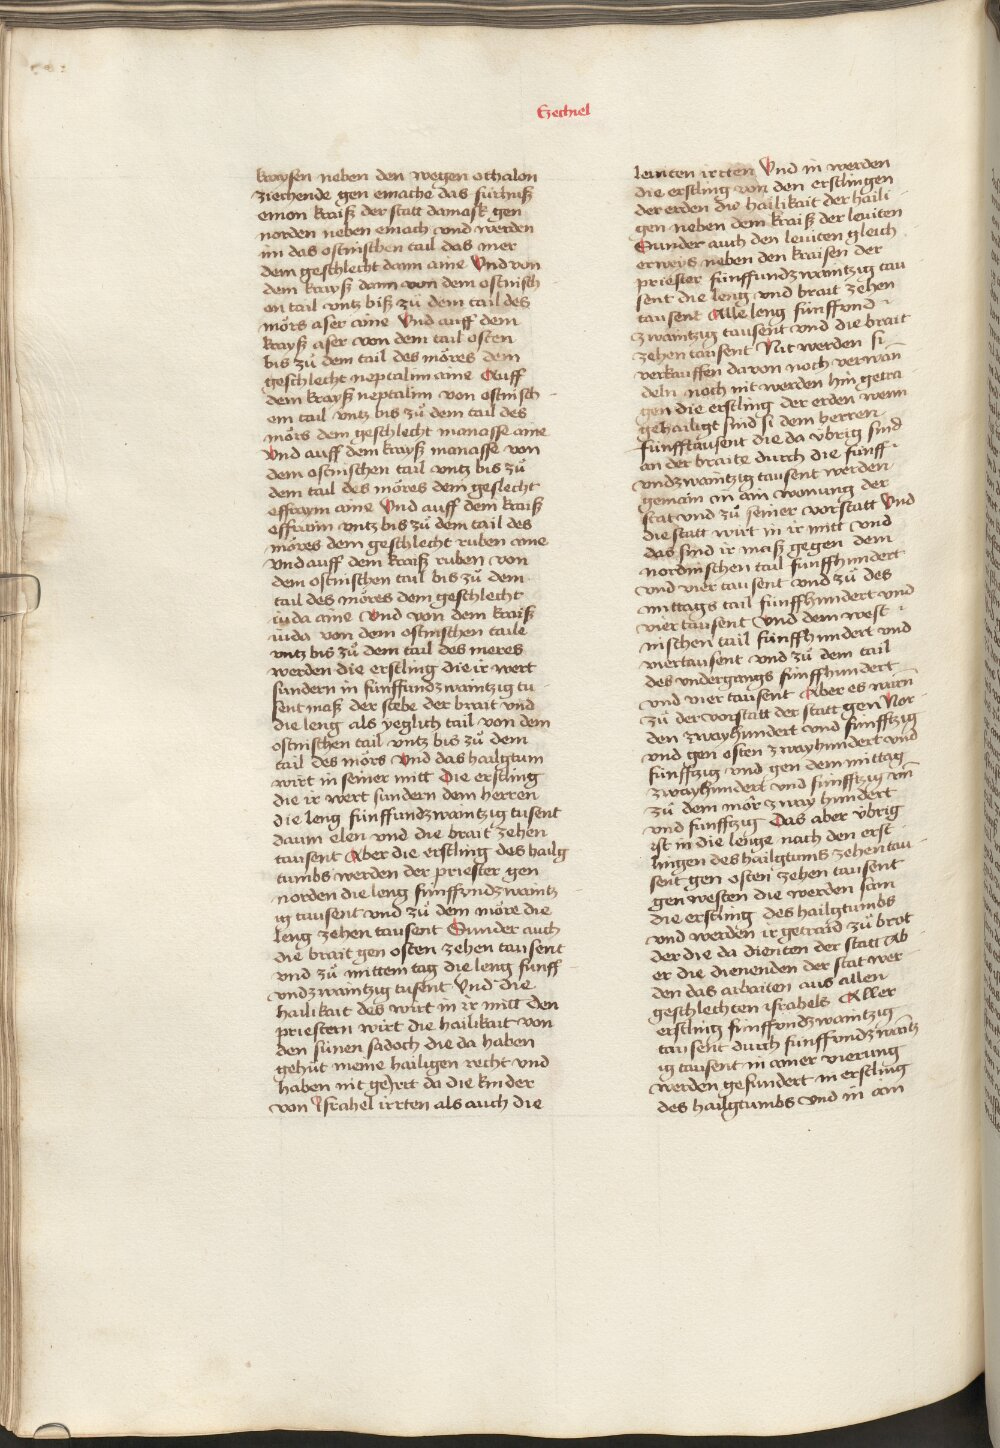 Ezechiel
kraysen neben den wegen othalon
ziechende gen emache das fürhuß
emon kraiß der statt damask gen
norden neben emach vnd werden
im das ostnischen tail das mer
dem geschlecht dann aine Vnd von
dem krayß dann von dem ostnisch
en tail vntz biß zů dem tail des
mörs aser aine Vnd auff dem
krayß aser von dem tail osten
bis zů dem tail des möres dem
geschlecht neptalim aine Auff
dem krayß neptalim von ostnisch
em tail vntz bis zů dem tail des
mörs dem geschlecht manasse aine
Vnd auff dem krayß manasse von
dem ostnischen tail vntz bis zů
dem tail des möres dem geslecht
effraym aine Vnd auff dem kraiß
effraim vntz bis zů dem tail des
möres dem geschlecht ruben aine
vnd auff dem kraiß ruben von
dem ostnischen tail bis zů dem
tail des möres dem geschlecht
iuda aine Vnd von dem kraiß
iuda von dem ostnischen taile
vntz bis zů dem tail des meres
werden die erstling die ir wert
sundern in fünffundzwaintzig tu
sent maß der stebe der brait vnd
die leng als yeglich tail von dem
ostnischen tail vntz bis zů dem
tail des mörs Vnd das hailgtum
wirt in seiner mitt Die erstling
die ir wert sundern dem herren
die leng fünffundzwaintzig tusent
daum elen vnd die brait zehen
tausent Aber die erstling des hailg
tumbs werden der priester gen
norden die leng fünffvndzwaintz
ig tausent vnd zů dem möre die
leng zehen tausent Sunder auch
die brait gen osten zehen tausent
vnd zů mittem tag die leng fünff
vndzwaintzig tusent Vnd die
hailikait des wirt in ir mitt Den
priestern wirt die hailikait von
den sünen sadoch die da haben
gehüt meine hailigen recht vnd
haben nit geirrt da die kinder
von Israhel irrten als auch die
leuiten irrten Vnd in werden
die erstling von den erstlingen
der erden die hailikait der haili
gen neben dem kraiß der leuiten
Sunder auch den leuiten gleich
erweys neben den kraisen der
priester fünffundzwaintzig tau
sent die leng vnd brait zehen
tausent Alle leng fünffvnd
zwaintzig tausent vnd die brait
zehen tausent Nit werden si
verkauffen dauon noch verwan
deln noch nit werden hin getra
gen die erstling der erden wenn
gehailigt sind si dem herren
fünfftausent die da übrig sind
an der braite durch die fünff
vndzwaintzig tausent werden
gemain in ain wonung der
stat vnd zů seiner vorstatt Vnd
die statt wirt in ir mitt vnd
das sind ir maß gegen dem
nordnischen tail fünffhundert
vnd vier tausent vnd zů des
mittags tail fünffhundert vnd
vier tausent Vnd dem west
nischen tail fünffhundert vnd
viertausent vnd zů dem tail
des vndergangs fünffhundert
vnd vier tausent Aber es warn
zů der vorstatt der statt gen Nor
den zwayhundert vnd fünfftzig
vnd gen osten zwayhundert vnd
fünfftzig vnd gen dem mittag
zwayhundert vnd fünfftzig vn̄
zů dem mör zway hundert
vnd fünfftzig Das aber übrig
ist in die lenge nach den erst
lingen des hailgtums zehen tau
sent gen osten zehen tausent
gen westen die werden sam
die erstling des hailgtumbs
vnd werden ir getraid zů brot
der die da dienten der statt Ab
er die dienenden der stat wer
den das arbaiten aus allen
geschlechten israhels Aller
erstling fünffvndzwaintzig
tausent durch fünffundzwaītz
ig tausent in ainer vierung
werden gesundert in erstling
des hailgtumbs vnd in ain